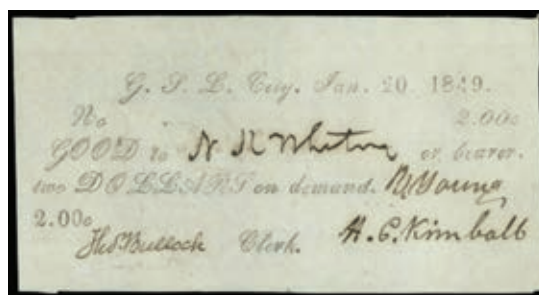 G. S. L. City. Jan. 20 1849.
No 2.00c
GOOD to N K Whitney or bearer.
two DOLLARS on demand. B Young
2.00c
Thos Bullock Clerk. H. C. Kimball